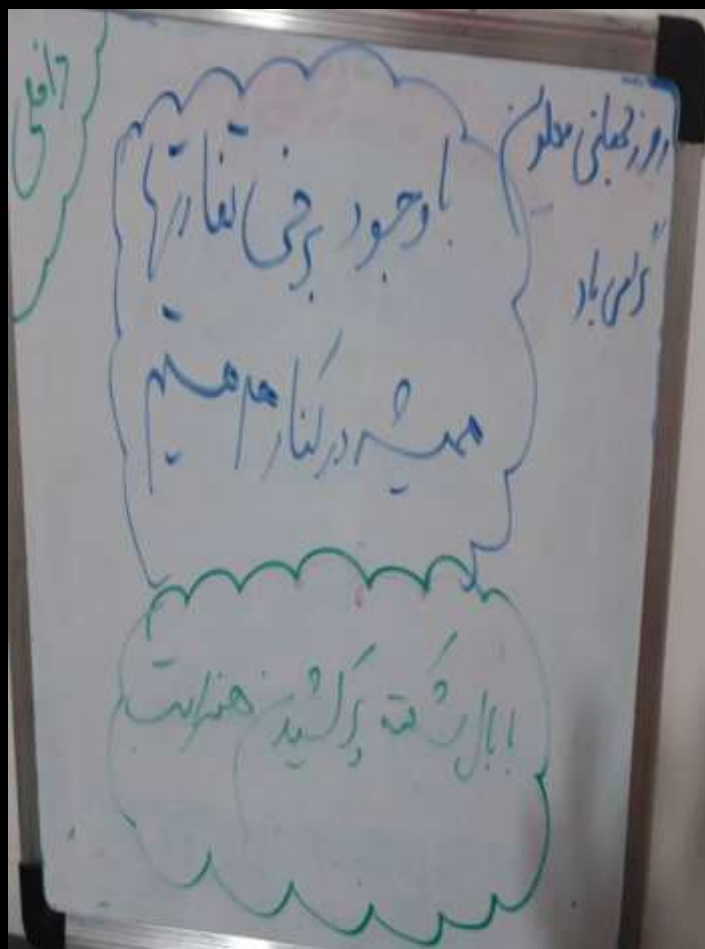 روز جهانی معلولین
گرامی باد
با وجود برخی تفاوتها
همیشه در کنار هم هستیم
با بال شکسته پر کشیدن هنر است